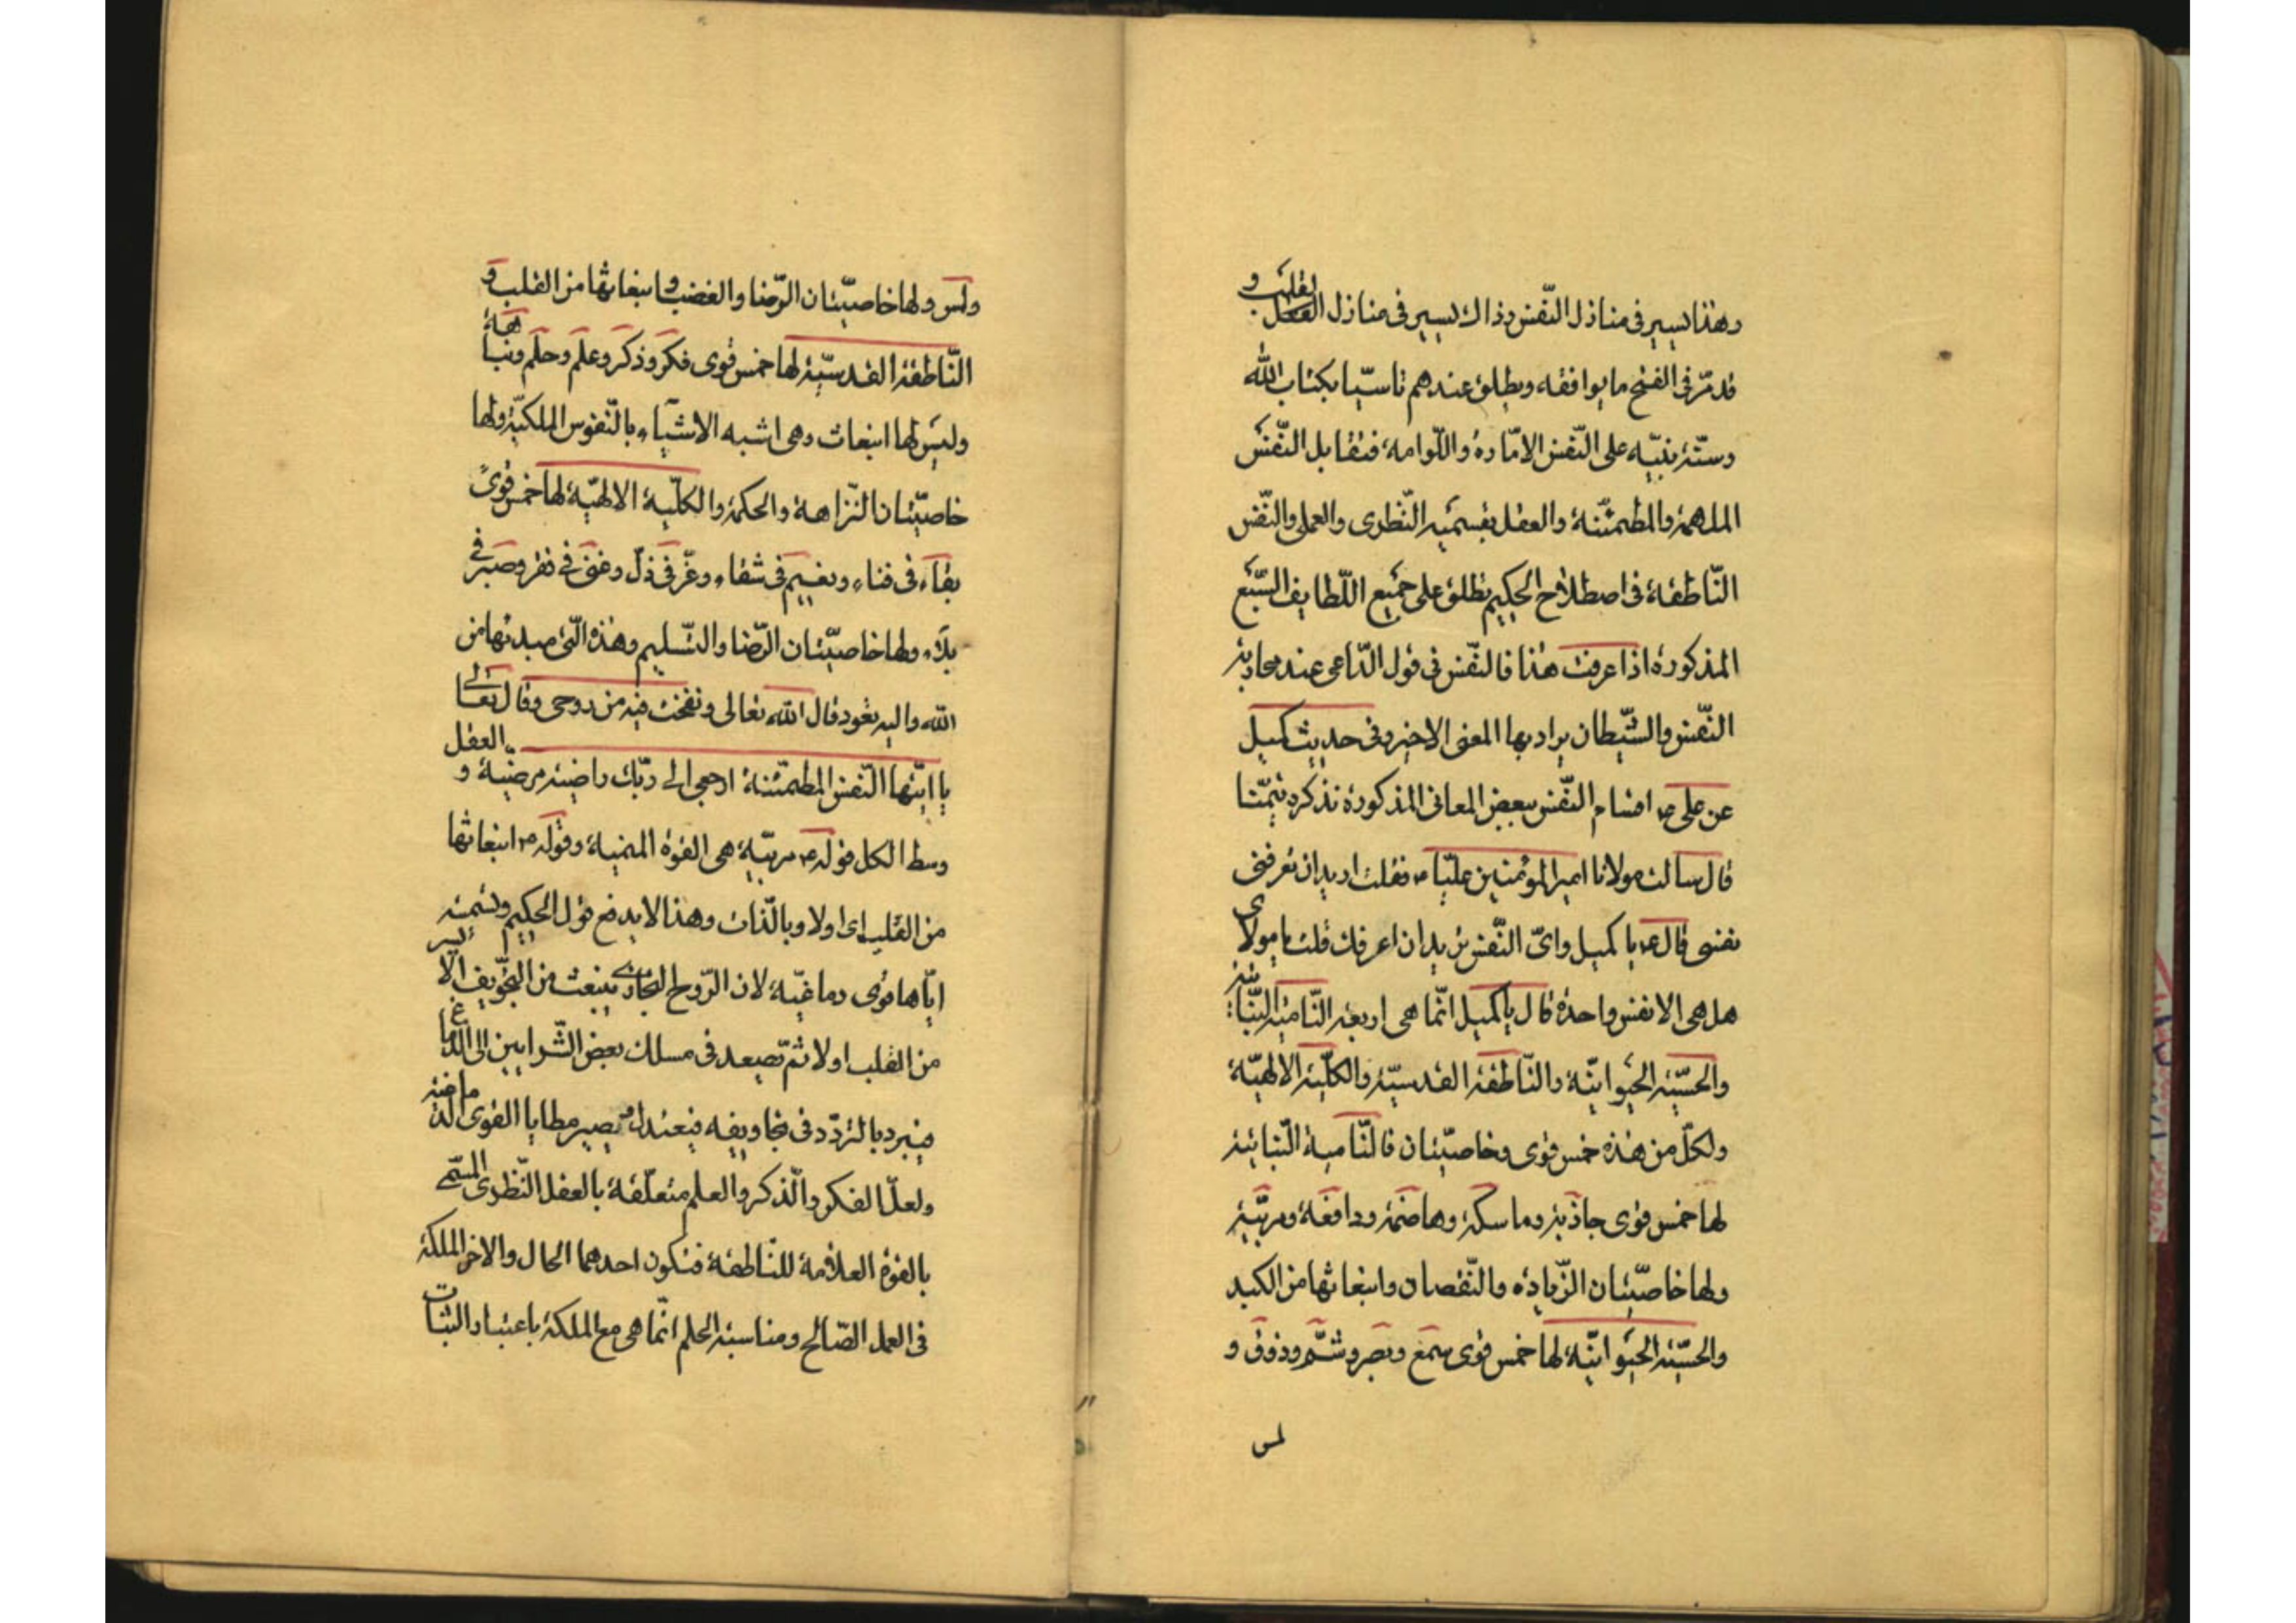 وهذا يسير فى منازل النّفس وذاك يسير فى منازل القلب و
قد مرّ فى الفتح ما يوافقه ويطلق عندهم تاسّيا بكتاب الله
وسنّة نبيّه على النّفس الامّارة واللّوامة فتقابل النّفس
الملهمة والمطمئنّة والعقل بقسميه النّظرى والعملى والنّفس
النّاطقة فى اصطلاح الحكيم تطلق على جميع اللّطايف السّبع
المذكورة اذا عرفت هذا فالنّفس فى قول الدّاعى عند محاربة
النّفس والشّيطان يراد بها المعنى الاخير وفى حديث كميل
عن على ع اقسام النّفس ببعض المعانى المذكورة نذكره تيمّنا
قال سالت مولانا امير المؤمنين عليّا ع فقلت اريد ان تعرفنى
نفسى قال ع يا كميل واىّ النّفس تريد ان اعرفك قلت يا مولاى
هل هى الا نفس واحدة قال يا كميل انّما هى اربعة النّامية النّباتية
والحسّية الحيوانيّة والنّاطقة القدسيّة والكلّية الالهيّة
ولكلّ من هذه خمس قوى وخاصيّتان فالنّامية النّباتية
لها خمس قوى جاذبة وماسكة وهاضمة ودافعة ومربّية
ولها خاصيّتان الزّيادة والنّقصان وانبعاثها من الكبد
والحسّية الحيوانيّة لها خمس قوى سمع وبصر وشمّ وذوق و
لمس
ولمس ولها خاصيّتان الرّضا والغضب وانبعاثها من القلب و
النّاطقة القدسيّة لها خمس قوى فكر وذكر وعلم وحلم ونباهة
وليس لها انبعاث وهى اشبه الاشيآء بالنّفوس الملكيّة ولها
خاصيّتان النّزاهة والحكمة والكلّية الالهيّة لها خمس قوى
بقآء فى فناء ونعيم فى شقاء وعزّ فى ذلّ وغنى فى فقر وصبر فى
بلآء ولها خاصيّتان الرّضا والتّسليم وهذه الّتى مبدئها من
الله واليه تعود قال الله تعالى ونفخت فيه من روحى وقال تعالى
يا ايّتها النّفس المطمئنّة ارجعى الى ربّك راضية مرضيّة و العقل
وسط الكل قوله ع مربيّة هى القوة المنمية وقوله ع انبعاثها
من القلب اى اولا وبالذّات وهذا لا يدفع قول الحكيم وتسميته
ايّاها قوى دماغيّة لان الرّوح البخارى ينبعث من التّجويف الايسر
من القلب اولا ثمّ تصعد فى مسلك بعض الشّرايين الى الدّماغ
فيبرد بالتردّد فى تجاويفه فيعتدل فيصير مطايا القوى الدّماغية
ولعلّ الفكر والذّكر والعلم متعلّقة بالعقل النّظرى المسمّى
بالقوة العلاّمة للنّاطقة فتكون احدهما الحال والاخر الملكة
فى العمل الصّالح ومناسبة الحلم انّما هى مع الملكة باعتبار الثبات